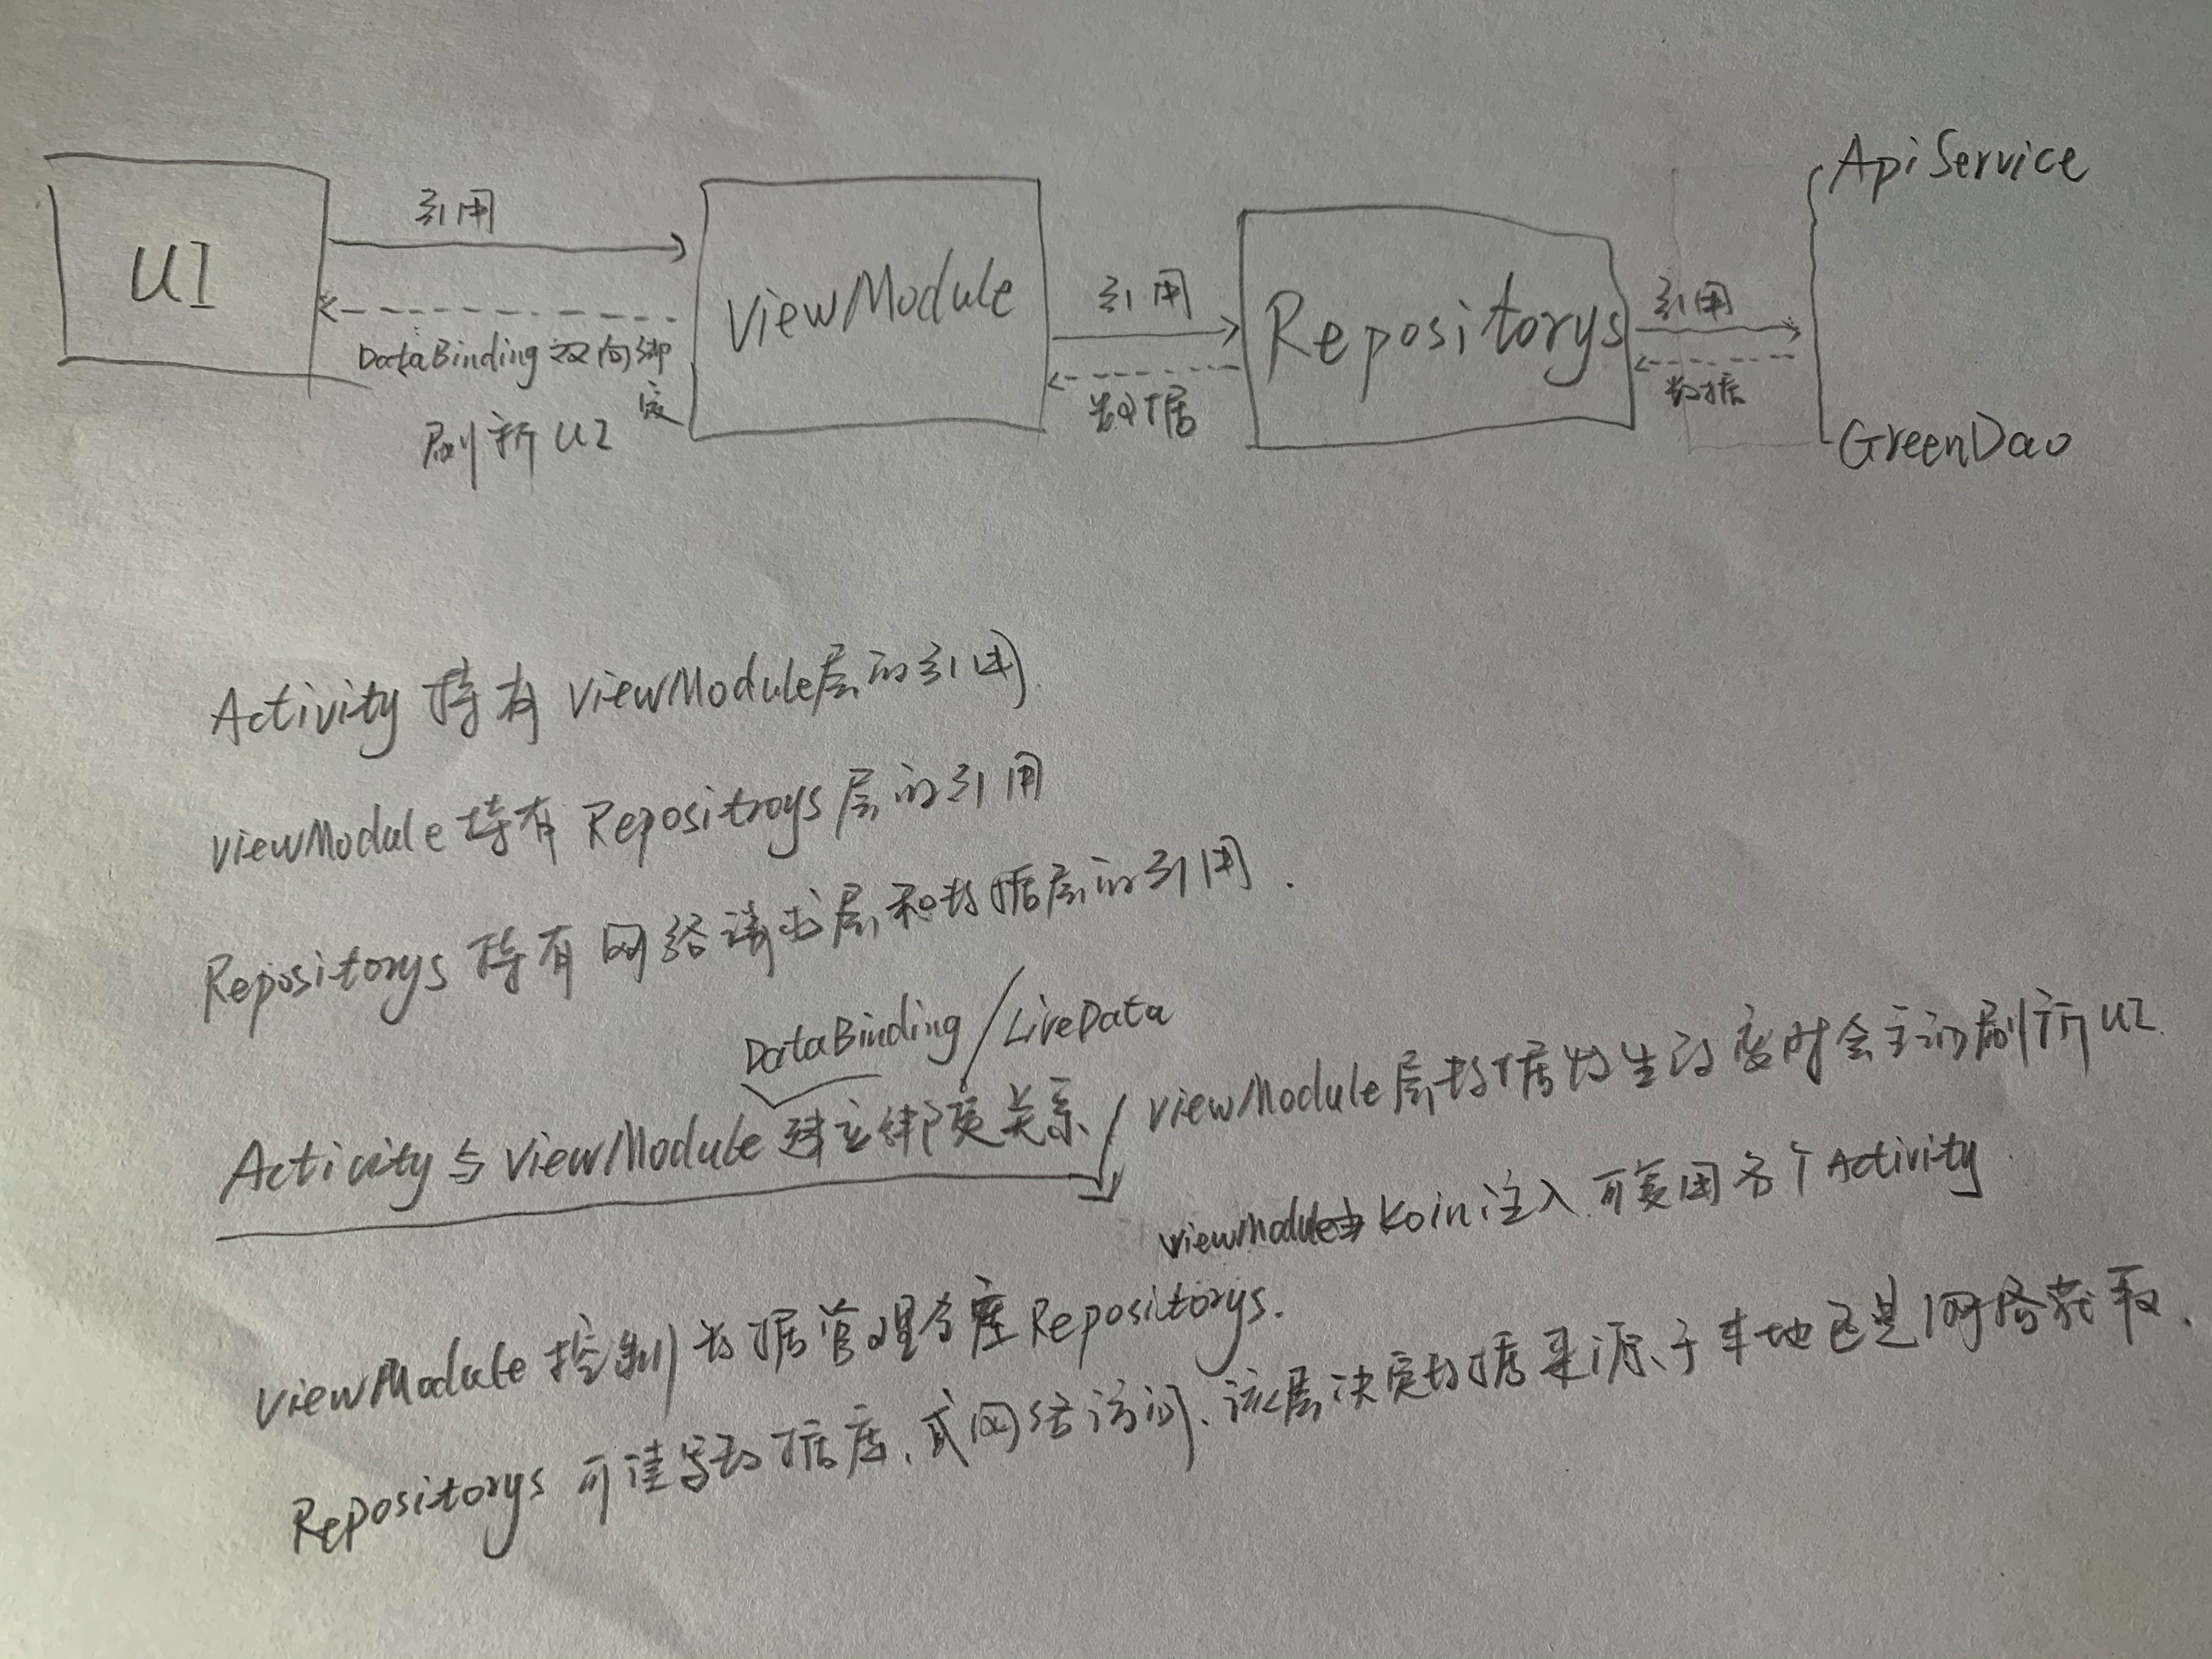 UI
引用
DataBinding 双向绑定
刷新 UI
ViewModule
引用
数据
Repositorys
引用
数据
ApiService
GreenDao
Activity 持有 ViewModule层的引用.
ViewModule 持有 Repositroys 层的引用
Repositorys 持有 网络请求层和数据层的引用.
DataBinding / LiveData
Acticity 与 ViewModule 建立绑定关系
ViewModule层数据发生改变时会主动刷新 UI.
ViewModule由 Koin 注入 可复用各个 Activity
ViewModule 控制 数据管理仓库 Repositorys.
Repositorys 可读写数据库、或网络访问、该层决定数据来源于本地还是网络获取.